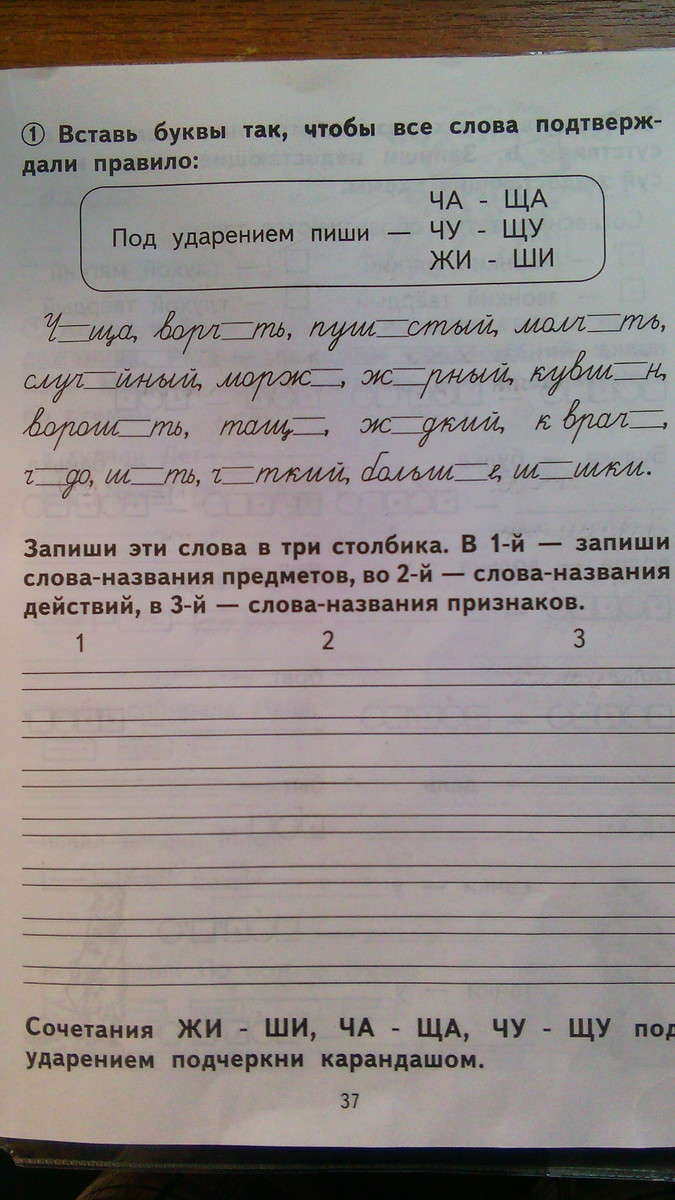 ① Вставь буквы так, чтобы все слова подтверж-
дали правило:
ЧА - ЩА
Под ударением пиши — ЧУ - ЩУ
ЖИ - ШИ
Ч_ща, ворч_ть, пуш_стый, молч_ть,
случ_йный, морж_, ж_рный, кувш_н,
ворош_ть, тащ_, ж_дкий, к врач_,
ч_до, ш_ть, ч_ткий, больш_е, ш_шки.
Запиши эти слова в три столбика. В 1-й — запиши
слова-названия предметов, во 2-й — слова-названия
действий, в 3-й — слова-названия признаков.
1 2 3
Сочетания ЖИ - ШИ, ЧА - ЩА, ЧУ - ЩУ под
ударением подчеркни карандашом.
37